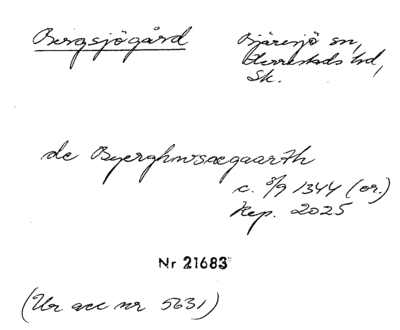 Bergsjögård Bjäresjö sn,
Herrestads hd,
Sk.
de Byerghwsøegaarth
c. 8/9 1344 (or.)
Rep. 2025
Nr 21683
(Ur acc nr 5631)